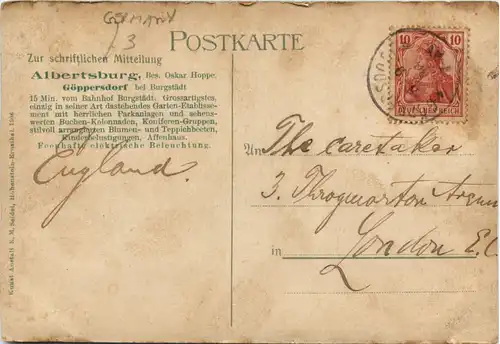 GERMANY
3
POSTKARTE
Zur schriftlichen Mitteilung
Albertsburg, Bes. Oskar Hoppe.
Göppersdorf bei Burgstädt
15 Min. vom Bahnhof Burgstädt. Grossartigstes,
einzig in seiner Art dastehendes Garten-Etablisse-
ment mit herrlichen Parkanlagen und sehens-
werten Buchen-Kolonnaden, Koniferen-Gruppen,
stilvoll arrangierten Blumen- und Teppichbeeten,
Kinderbelustigungen, Affenhaus.
Feenhafte elektrische Beleuchtung.
England.
Kunst Anstalt K. M. Seidel, Hohenstein-Ernstthal
10 10
DEUTSCHES REICH
An The caretaker
3. Throgmorton Avenue
in London E.C.